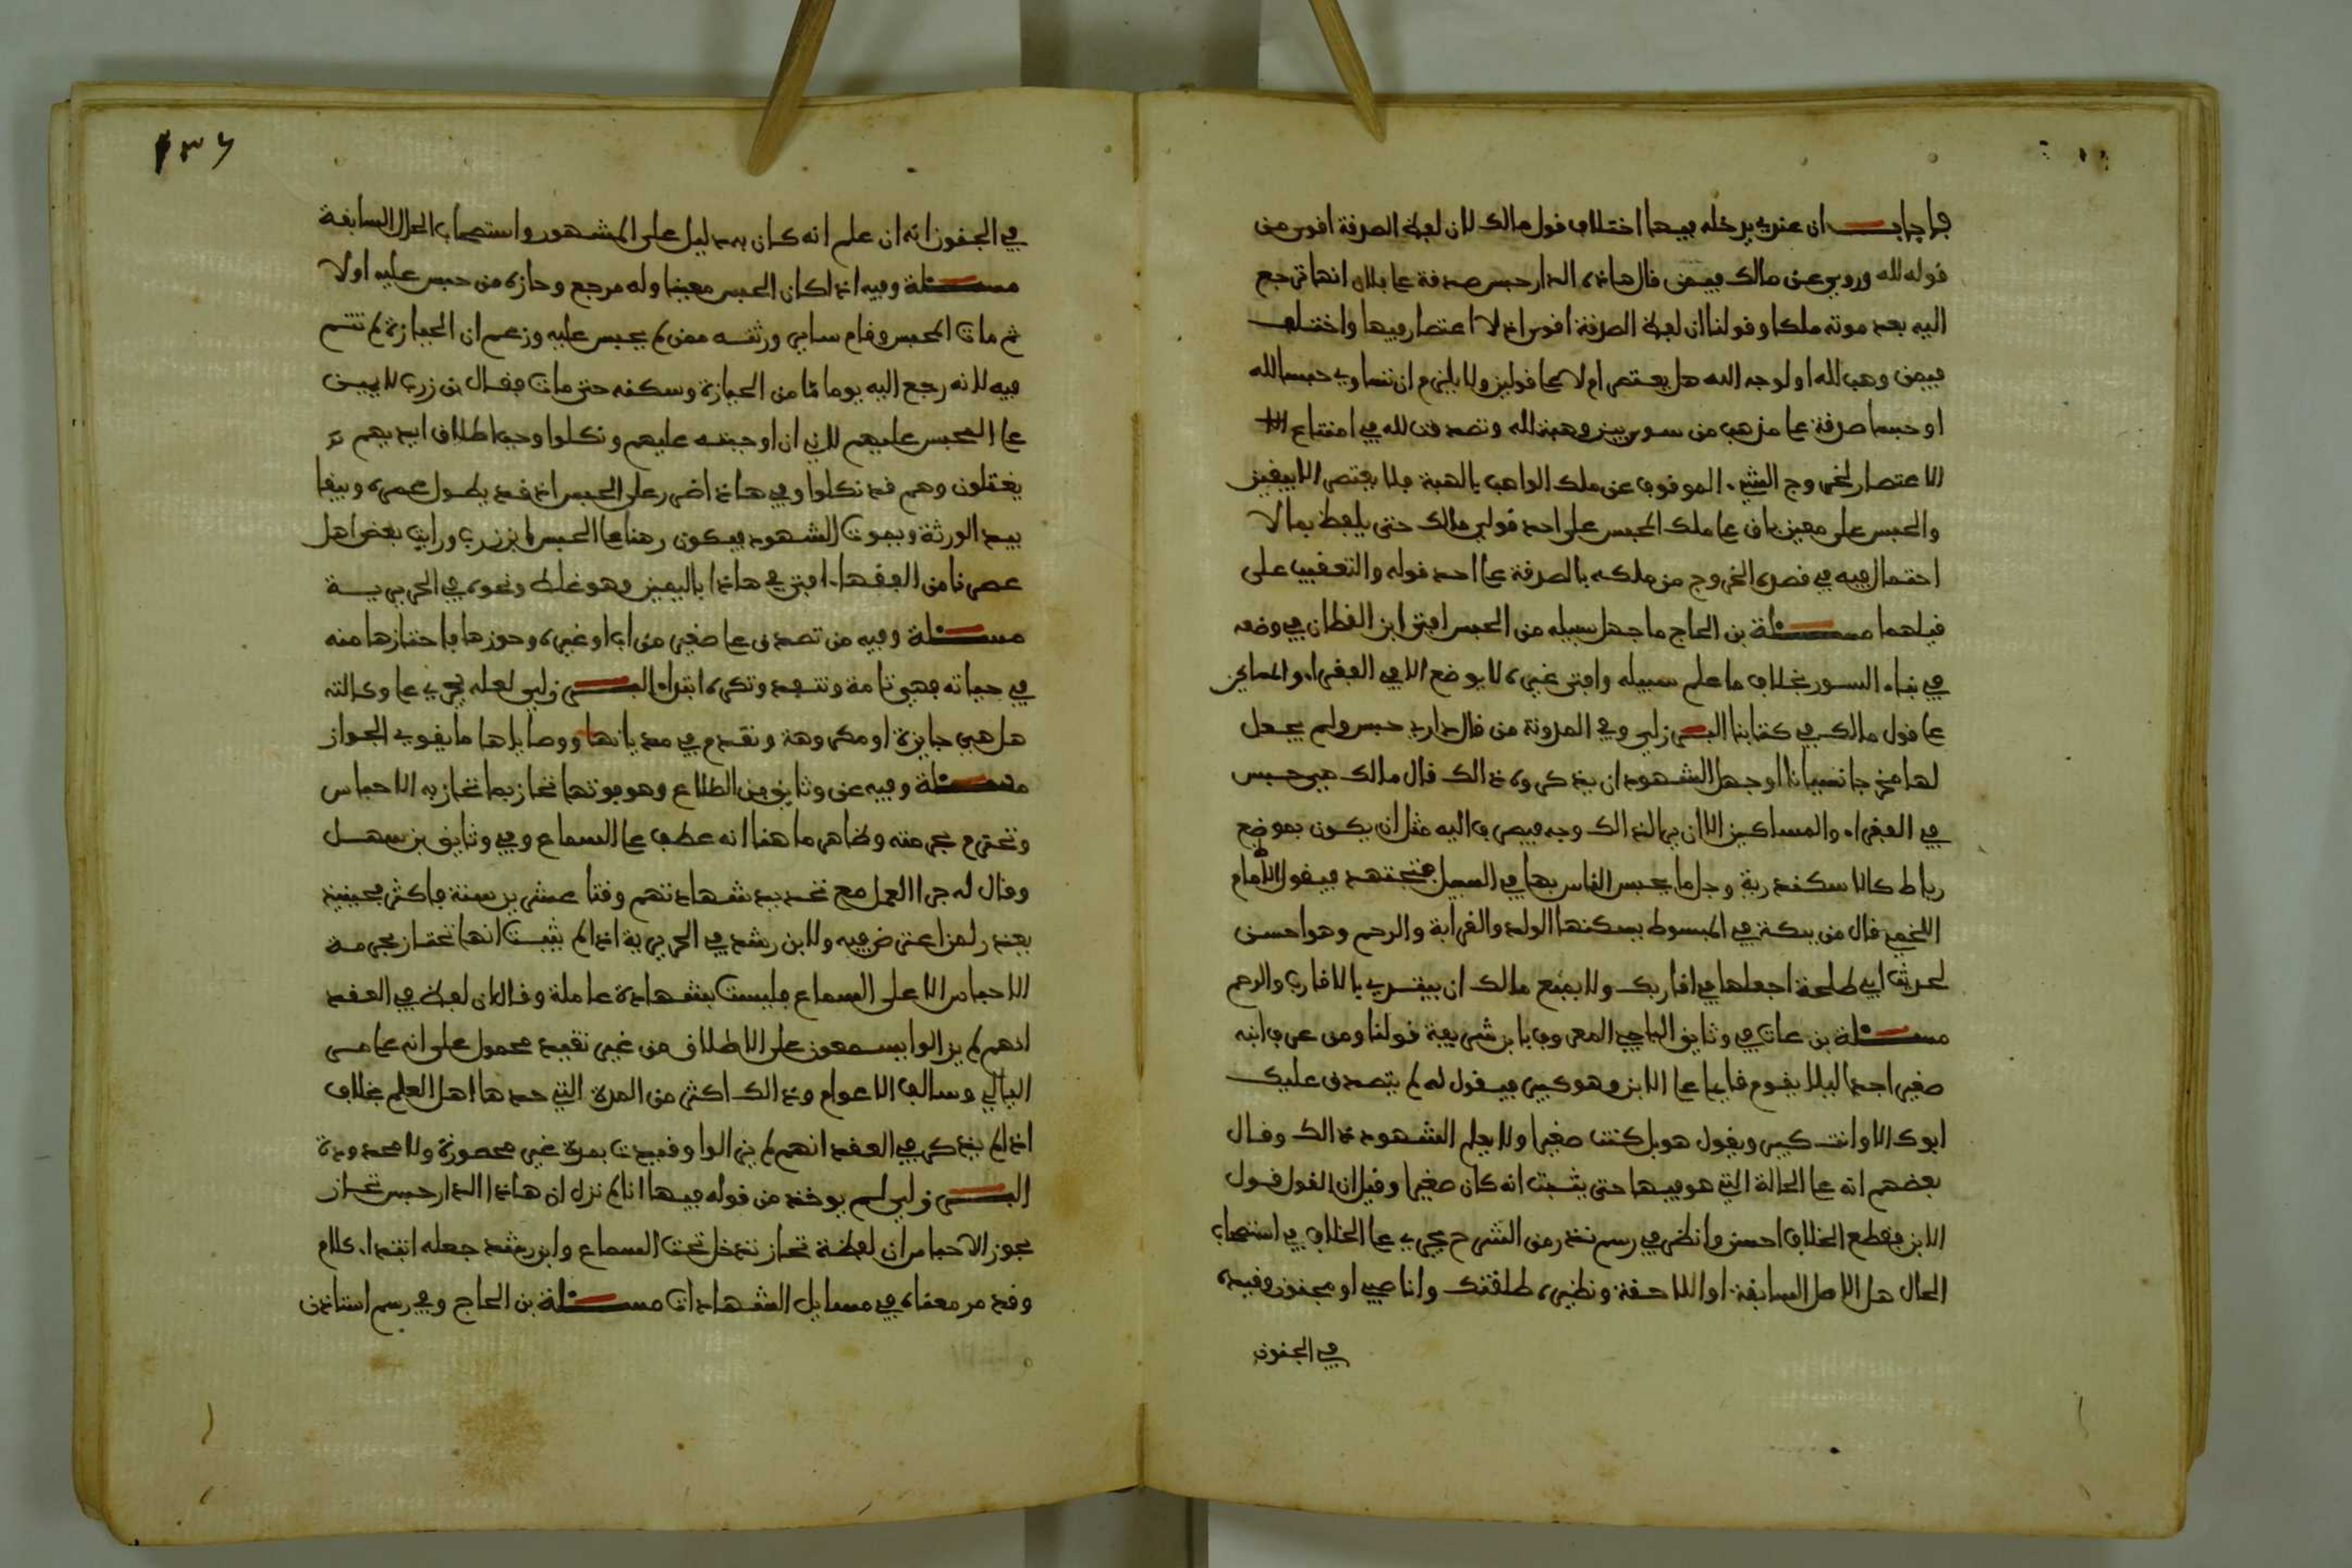 فاجاب ان عندي يدخله فيها اختلاف قول مالك لان لفظ الصدقة اقوى من
قوله لله وروي عن مالك فيمن قال هاذه الدار حبس صدقة على فلان انها ترجع
اليه بعد موته ملكا وقولنا ان لفظ الصدقة اقوى اذ لا اعتصار فيها واختلف
فيمن وهب لله او لوجه الله هل يعتصر ام لا على قولين ولا يلزم ان تساوي حبسا لله
او حبسا صدقة على مذهب من سوى بين وهبت لله وتصدقت لله في امتناع
الاعتصار لخروج الشيء الموقوف عن ملك الواهب بالهبة فلا يعتصر الا بيقين
والحبس على معين باق على ملك المحبس على احد قولي مالك حتى يلفظ بما لا
احتمال فيه في قصده الخروج من ملكه بالصدقة على احد قوله والتعقيب على
قبلهما مسئلة بن الحاج ما جهل سبيله من الحبس افتى ابن القطان في وضعه
في بناء السور بخلاف ما علم سبيله وافتى غيره لا يوضع الا في الفقراء والمساكين
على قول مالك في كتابنا البرزلي وفي المدونة من قال داري حبس ولم يجعل
لها مخرجا نسيانا او جهل الشهود ان يذكروه ذالك قال مالك هي حبس
في الفقراء والمساكين الا ان يرا لذالك وجه فيصرف اليه مثل ان يكون بموضع
رباط كالاسكندرية وجل ما يحبس الناس بها في السبيل فيجتهد فيقول الامام
اللخمي قال من بكة في المبسوط يسكنها الولد والقرابة والرحم وهو احسن
لحديث ابي طلحة اجعلها في اقاربك ولا يمنع مالك ان يبتدي بالاقارب والرحم
مسئلة بن عات في وثايق الباجي المعروف بابن شريعة قولنا ومن عرف ابنه
صغيرا جدا ليلا يقوم قايما على الابن وهو كبير فيقول له لم يتصدق عليك
ابوك الا وانت كبير ويقول هو بل كنت صغيرا ولا يعلم الشهود ذالك وقال
بعضهم انه على الحالة التي هو فيها حتى يثبت انه كان صغيرا وقيل ان القول قول
الابن فقطع الخلاف احسن وانظر في رسم نذر من الشرح يجري على الخلاف في استصحاب
الحال هل الاصل السابقة او اللاحقة ونظيره طلقتك وانا صبي او مجنون وقيده
في الجنون
١٣٦
في الجنون انه ان علم انه كان به دليل على المشهور واستصحاب الحال السابقة
مسئلة وفيه اذا كان الحبس معينا وله مرجع وحازه من حبس عليه اولا
ثم مات المحبس وقام ساير ورثته ممن لم يحبس عليه وزعم ان الحيازة لم تتم
فيه لانه رجع اليه يوما ما من الحيازة وسكنه حتى مات فقال بن زرب لا يمين
على المحبس عليهم لاني ان اوجبته عليهم ونكلوا وجب اطلاق ايديهم
يغتلون وهم قد نكلوا وفي هاذا ضرر على الحبس اذ قد يطول عمره ويبقا
بيد الورثة ويموت الشهود فيكون رهنا على الحبس لابن زرب ورايت بعض اهل
عصرنا من الفقهاء افتى في هاذا باليمين وهو غلط ونحوه في الجزيرية
مسئلة وفيه من تصدق على صغير من اب او غيره وحوزها فاحتازها منه
في حياته فهي تامة وتنفيذ وتكره ابتداء البرزلي لعله يجري على وكالته
هل هي جايزة او مكروهة وتقدم في مديانها ووصاياها ما يقوي الجواز
مسئلة وفيه عن وثايق بن الطلاع وهو يوتها تحاز بما تحاز به الاحباس
وتحترم بحرمته وظاهر ما هنا انه عطف على السماع وفي وثايق بن سهل
وقال له جرا العمل مع تحديد شهادتهم وقتا عشرين سنة فاكثر فحينيذ
يعذر لمن اعترض فيه ولابن رشد في الجزيرية اذا لم يثبت انها تحتاز بحرمة
الاحباس الا على السماع فليست بشهادة عاملة وقال ان لفظ في العقد
انهم لم يزالوا يسمعون على الاطلاق من غير تقييد محمول على انه على مر
الليالي وسالف الاعوام وذالك اكثر من المدة التي حدها اهل العلم بخلاف
اذا لم يذكر في العقد انهم لم يزالوا وقيدت بمدة غير محصورة ولا محدودة
البرزلي لم يوخذ من قوله فيها انا لم نزل ان هاذا الدار حبس تحاز
بحوز الاحباس ان لفظة تحاز تدخل تحت السماع وابن رشد جعله ابتداء كلام
وقد مر معناه في مسايل الشهادات مسئلة بن الحاج وفي رسم استاذن